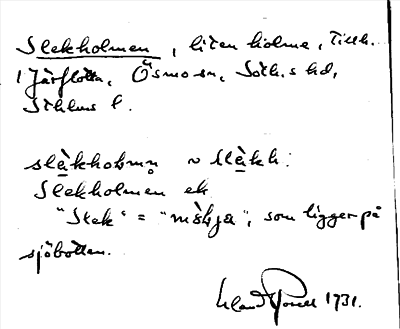 Slekholmen, liten holme, Tillh.
1 Järflotta, Ösmo sn, Soth.s hd,
Sthlms l.
slèkhòlmn̥ ~ slèkh:
Slekholmen ek
"Slek" = "mökja", som ligger på
sjöbotten.
1931.